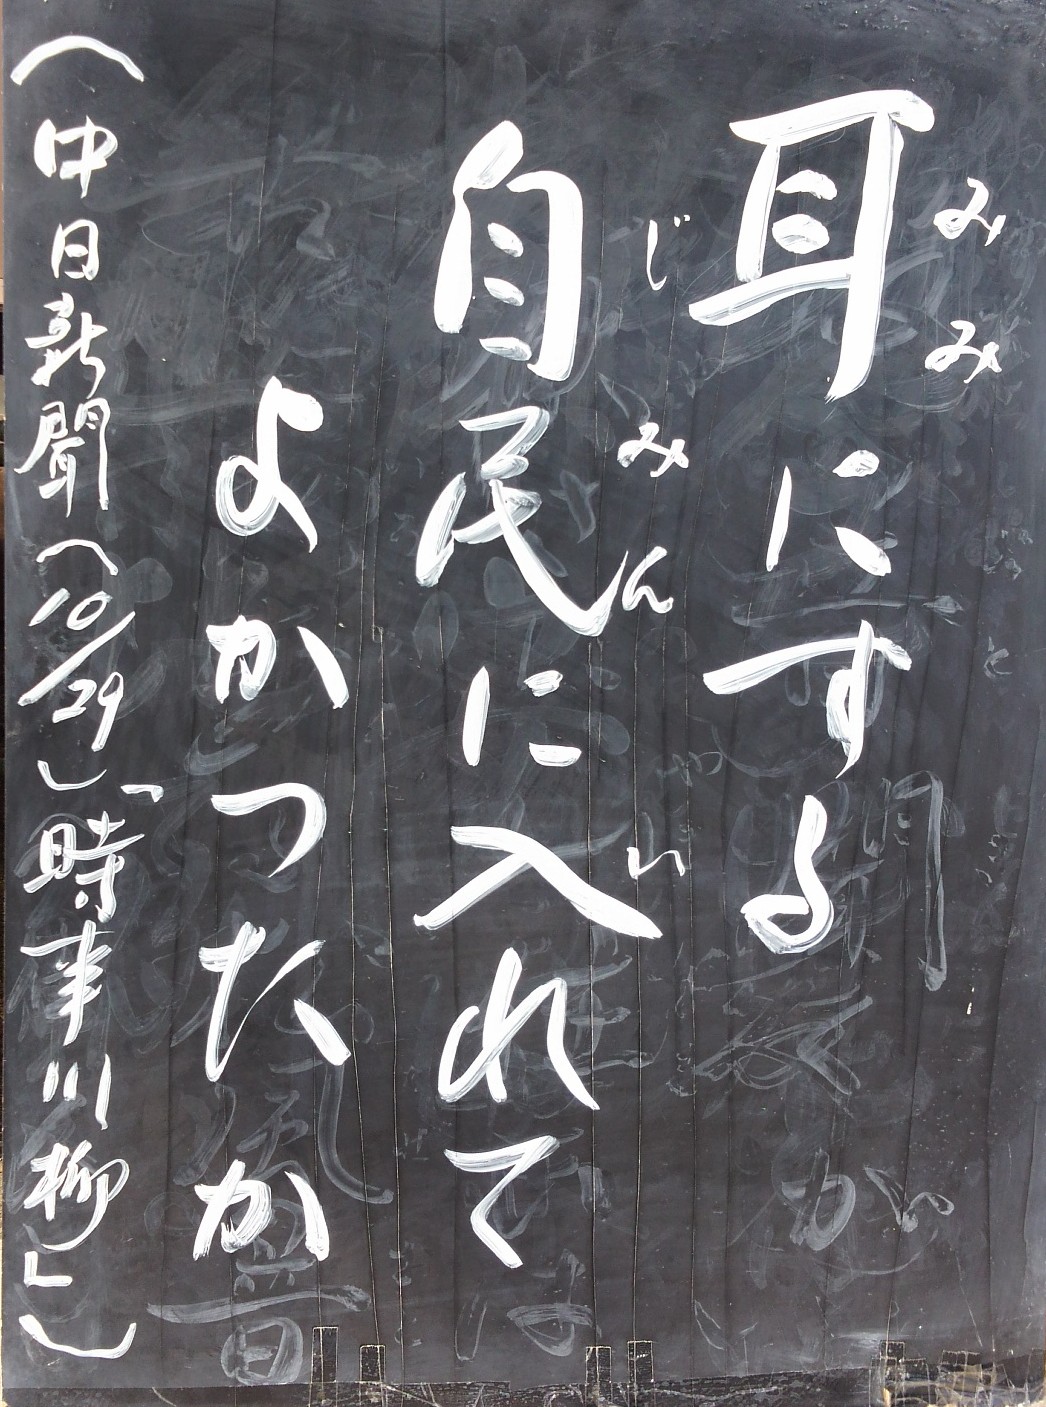 耳にする
みみ
自民に入れて
じみん
い
よかったか
(中日新聞(10/29)「時事川柳」)